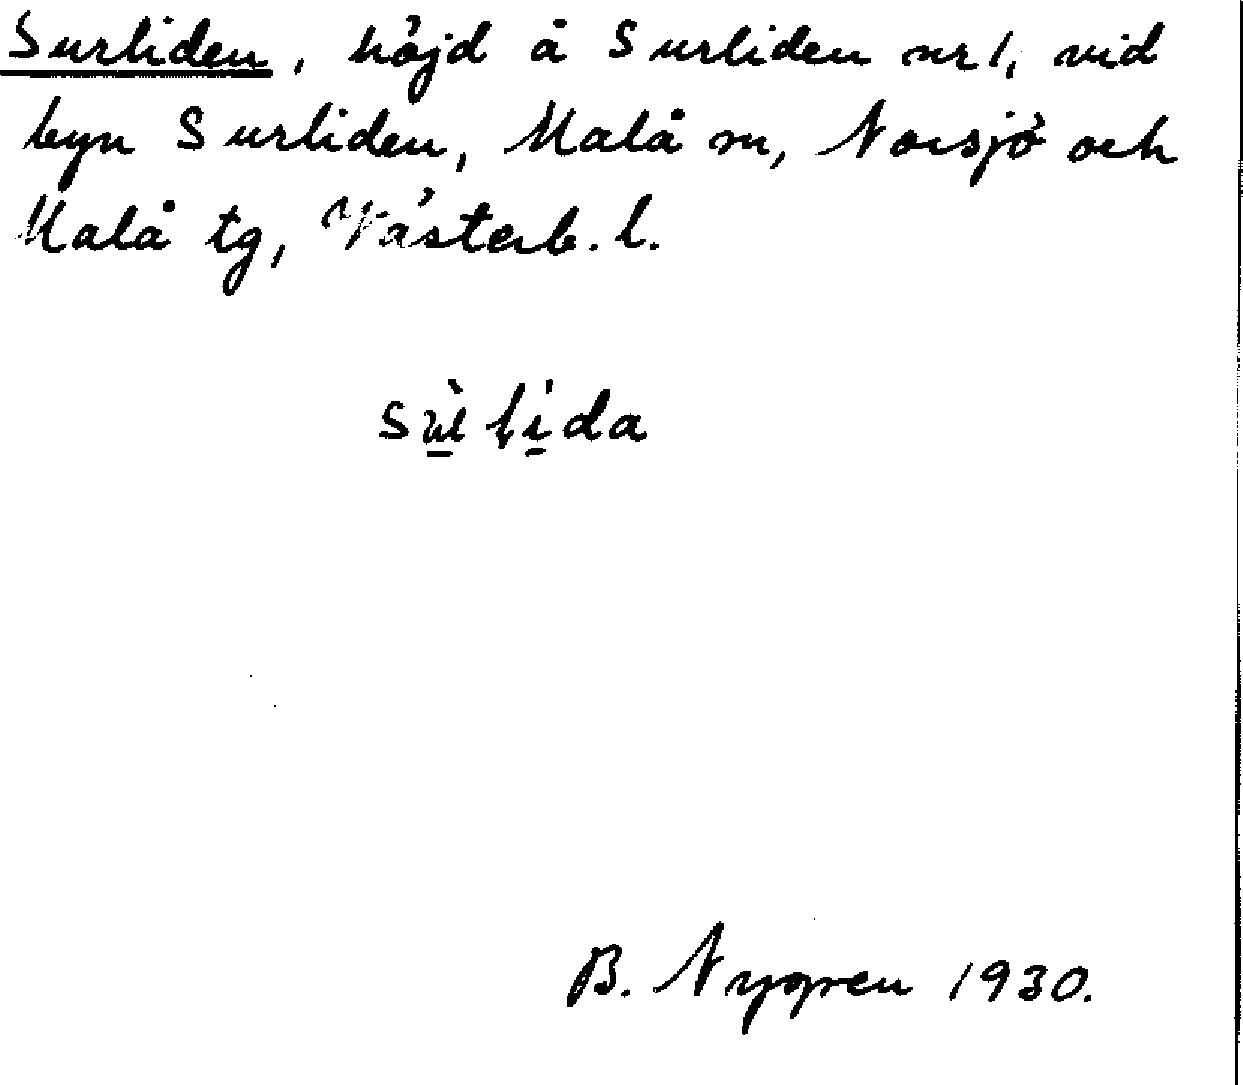 Surliden, höjd å Surliden nr 1, vid
byn Surliden, Malå sn, Norsjö och
Malå tg, Västerb. l.
B. Nygren 1930.